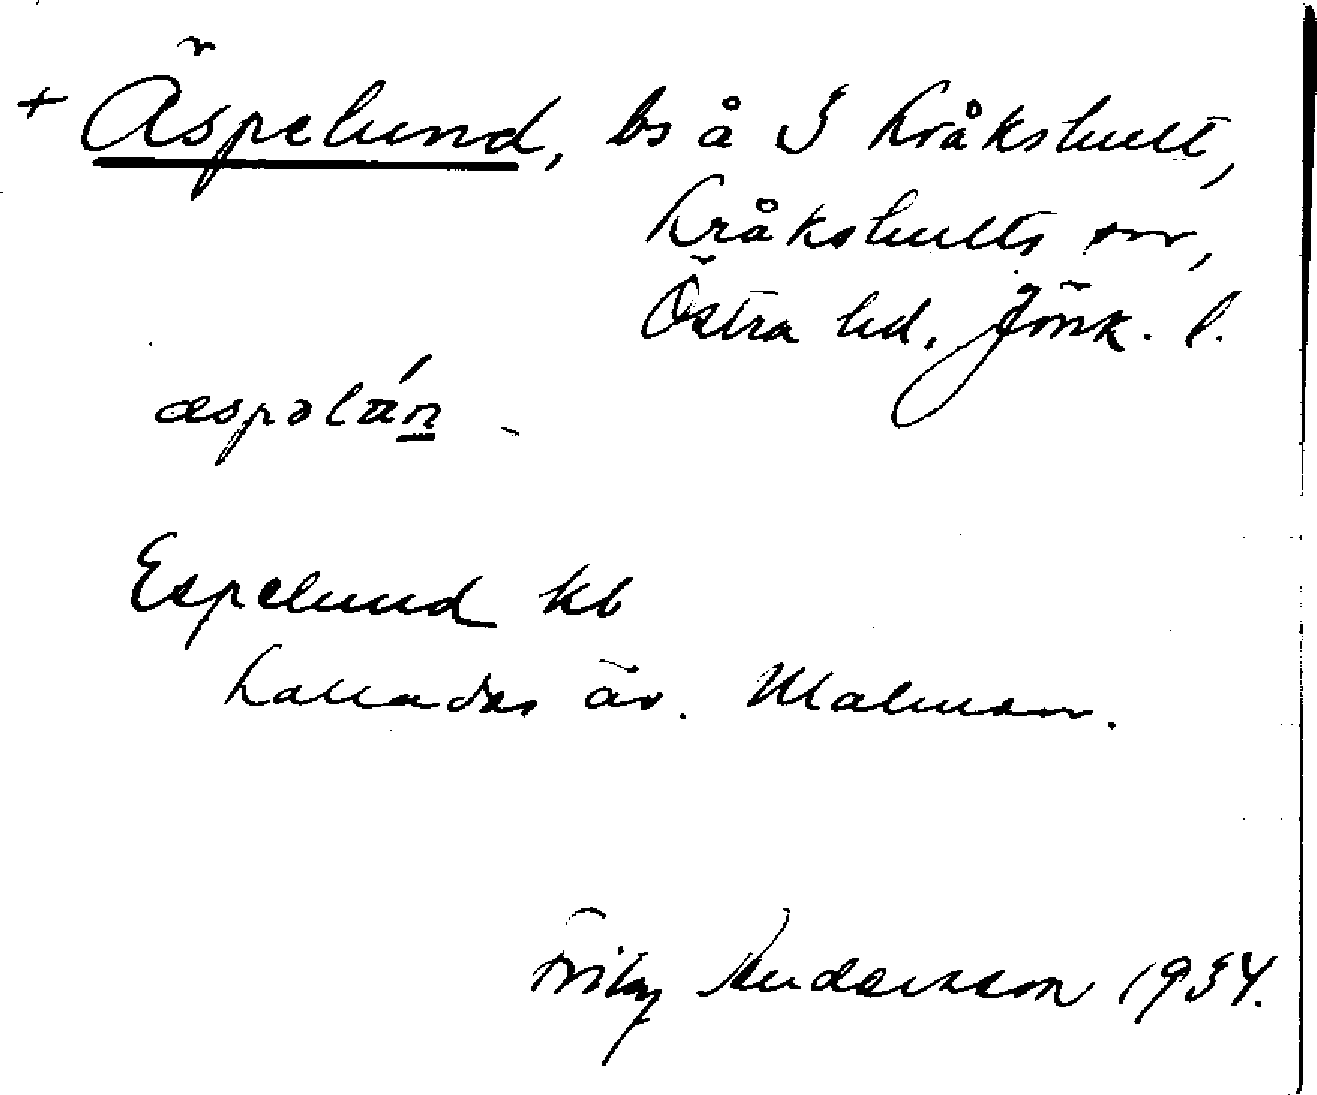 + Äspelund, bs å S Kråkshult,
Kråkshults sn,
Östra hd. Jönk. l.
æspəlún
Espelund kb
Kallades äv. Malmen.
Fritz Andersson 1934.